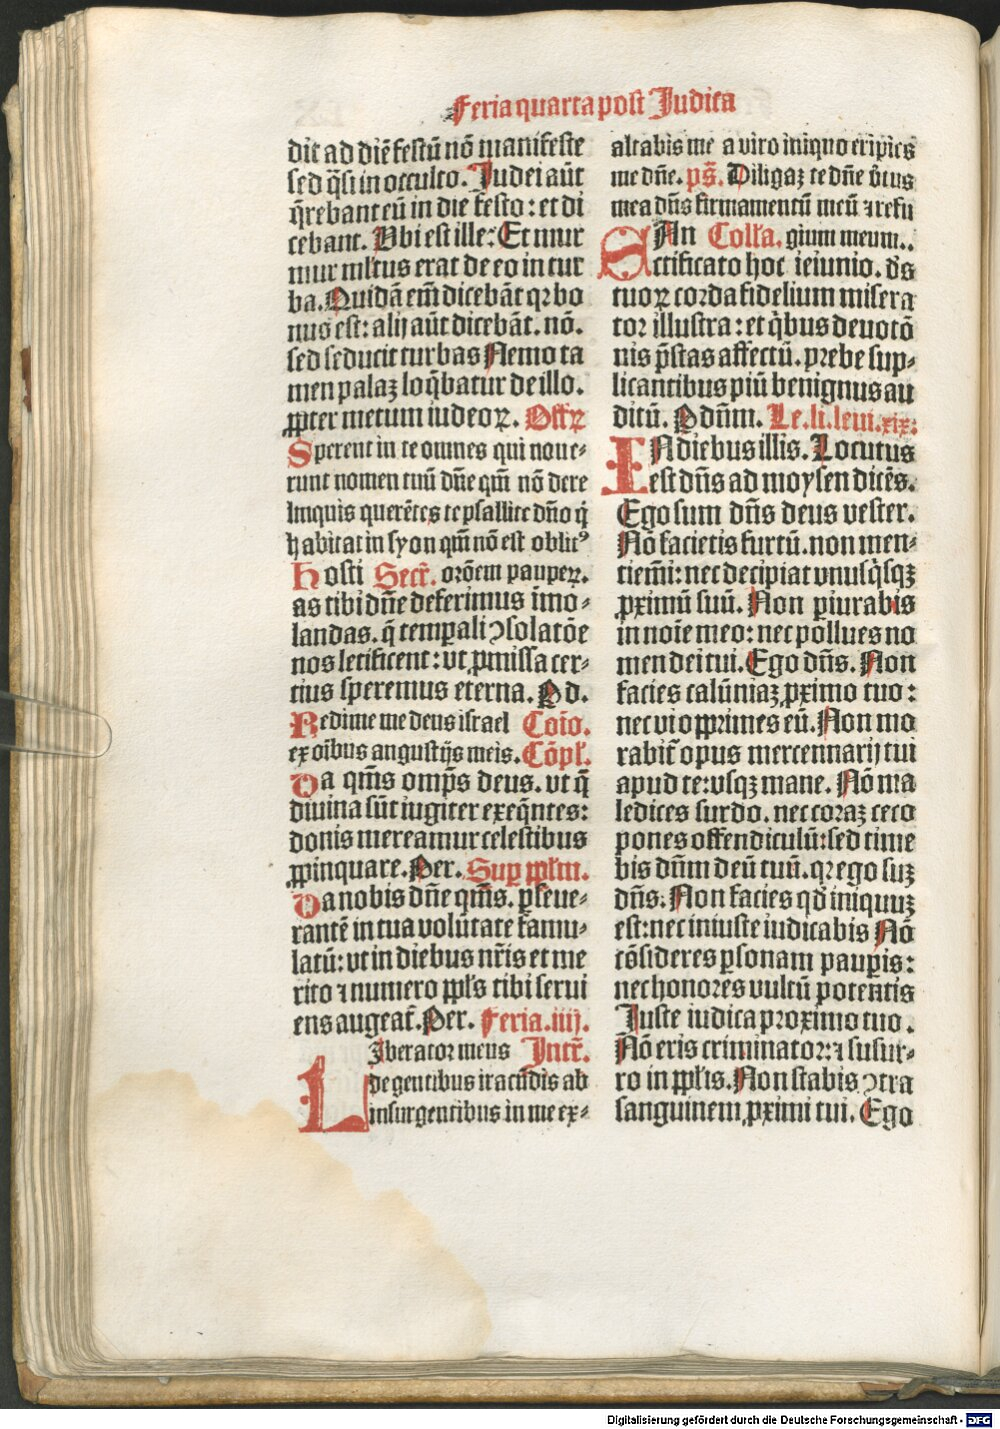 Feria quarta post Judica
dit ad diē festū nō manifeste
sed q̄si in occulto. Judei aūt
q̄rebant eū in die festo: et di
cebant. Ubi est ille: Et mur
mur mltus erat de eo in tur
ba. Quidā em̄ dicebāt qꝛ bo
nus est: alij aūt dicebāt. nō.
sed seducit turbas Nemo ta
men palaꝫ loq̄batur de illo.
ꝓpter metum iudeoꝝ. Offꝝ
Sperent in te omnes qui noue-
runt nomen tuū dn̄e qm̄ nō dere
linquis querētes te psallite dn̄o q̇
habitat in syon qm̄ nō est oblitꝰ
Hosti Secr̄. orōem pauperꝝ.
as tibi dn̄e deferimus īmo-
landas. q̄ temꝑali ꝯsolatōe
nos letificent: vt ꝓmissa cer-
tius speremus eterna. P d.
Redime me deus israel Coīo.
ex oībus angustijs meis. Cōpl̄.
Da qm̄s omp̄s deus. vt q̄
diuina sūt iugiter exeq̄ntes:
donis mereamur celestibus
ꝓpinquare. Per. Suꝑ ppl̄m.
Da nobis dn̄e qm̄s. ꝑseue-
rantē in tua volūtate famu-
latū: vt in diebus nr̄is et me
rito ⁊ numero ppl̄s tibi serui
ens augeat̄. Per. Feria.iiij.
Iberator meus Intr̄.
L de gentibus iracūdis ab
insurgentibus in me ex-
altabis me a viro iniquo eripies
me dn̄e. ps̄. Diligaꝫ te dn̄e v̄tus
mea dn̄s firmamentū meū ⁊ refu
SAn Coll̄a. gium meum..
ctificato hoc ieiunio. ds̄
tuoꝝ corda fidelium misera
tor illustra: et q̇bus deuotō
nis p̄stas affectū. prebe sup-
licantibus piū benignus au
ditū. P dn̄m. Le.li.leui.xix:
IN diebus illis. Locutus
est dn̄s ad moysen dicēs.
Ego sum dn̄s deus vester.
Nō facietis furtū. non men-
tiemī: nec decipiat vnusq̇sqꝫ
ꝓximū suū. Non ꝑiurabis
in noīe meo: nec pollues no
men dei tui. Ego dn̄s. Non
facies calūniaꝫ ꝓximo tuo:
nec vi opprimes eū. Non mo
rabit̄ opus mercennarij tui
apud te: vsqꝫ mane. Nō ma
ledices surdo. nec coraꝫ ceco
pones offendiculū: sed time
bis dn̄m deū tuū. qꝛ ego suꝫ
dn̄s. Non facies qd̄ iniquuꝫ
est: nec iniuste iudicabis Nō
cōsideres ꝑsonam pauꝑis:
nec honores vultū potentis
Juste iudica proximo tuo.
Nō eris criminator: ⁊ susur-
ro in ppl̄is. Non stabis ꝯtra
sanguinem ꝓximi tui. Ego
Digitalisierung gefördert durch die Deutsche Forschungsgemeinschaft - DFG